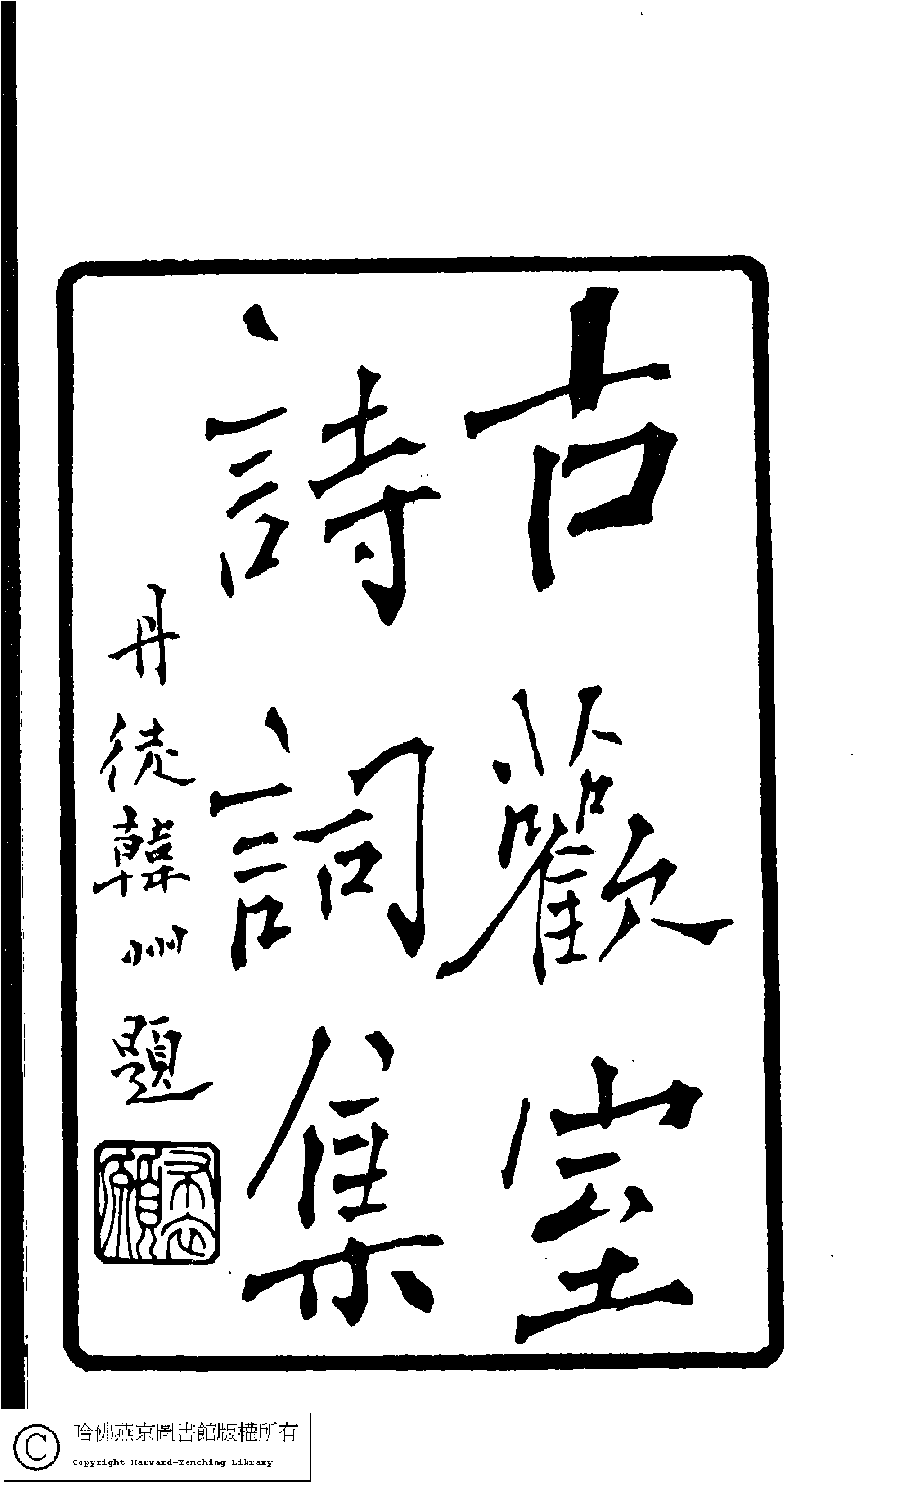 古歡室
詩詞集
丹徒韓州題
哈佛燕京圖書館版權所有
Copyright Harvard-Yenching Library